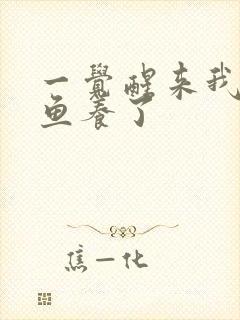 一覺醒来我
鱼养了
焦一化